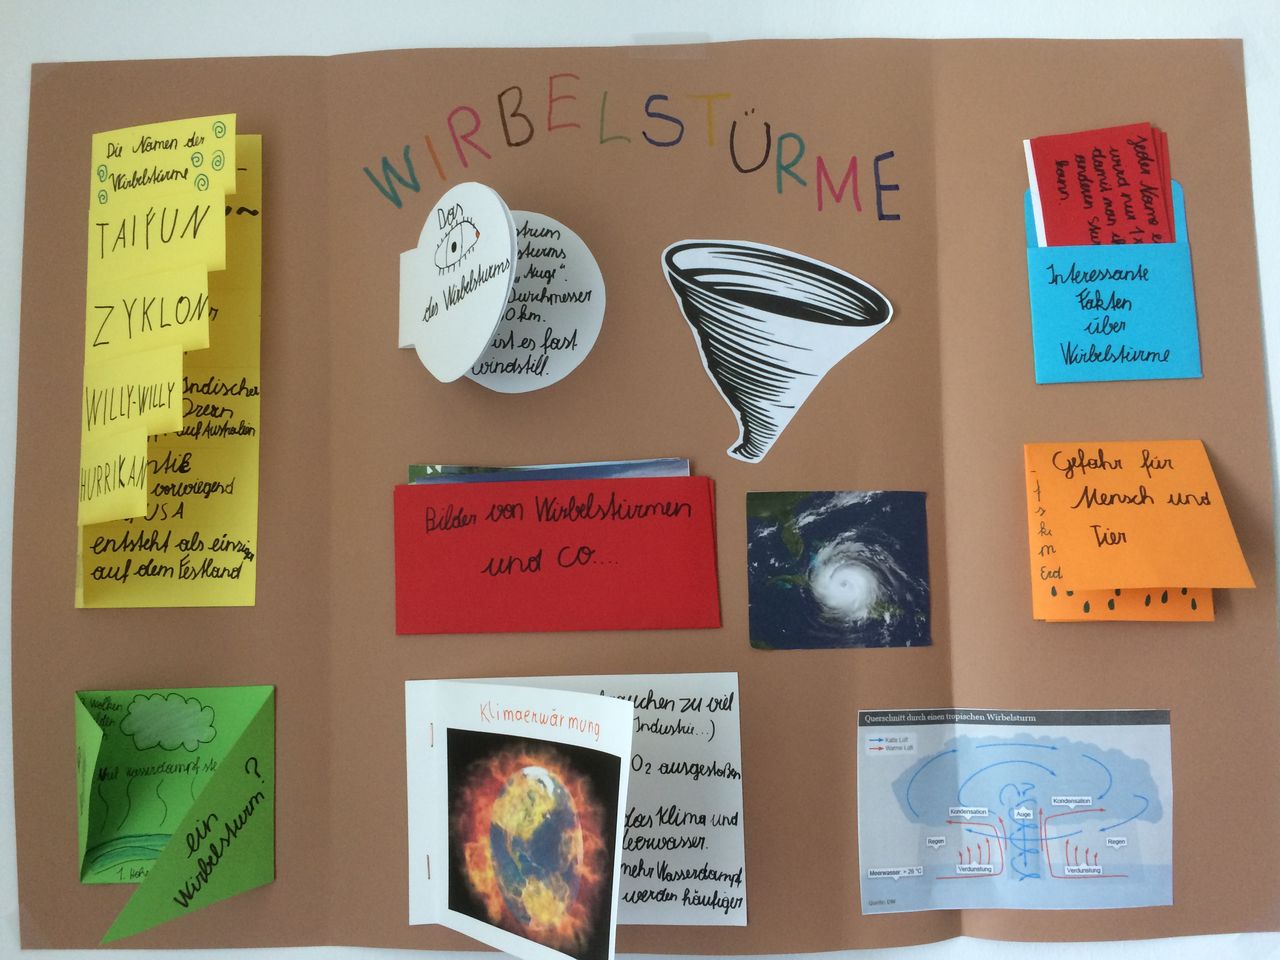 WIRBELSTÜRME
Die Namen der
Wirbelstürme
TAIFUN
ZYKLON
WILLY-WILLY
Indischer
Ozean
auf Australien
HURRIKAN
vorwiegend
USA
entsteht als einziger
auf dem Festland
Das
des Wirbelsturms
"Auge".
Durchmesser
0 km.
ist es fast
windstill.
Jeder Name
wird nur 1x
damit man
anderen
kann
Interessante
Fakten
über
Wirbelstürme
Bilder von Wirbelstürmen
und CO....
Gefahr für
Mensch und
Tier
Erd
Wolken
Wasserdampf
1.
ein
Wirbelsturm?
Klimaerwärmung
zu viel
Industrie...)
O2 ausgestoßen
das Klima und
mehr Wasserdampf
werden häufiger
Querschnitt durch einen tropischen Wirbelsturm
Kalte Luft
Warme Luft
Kondensation
Auge
Kondensation
Regen
Regen
Verdunstung
Verdunstung
Meerwasser > 26 °C
Quelle: DW